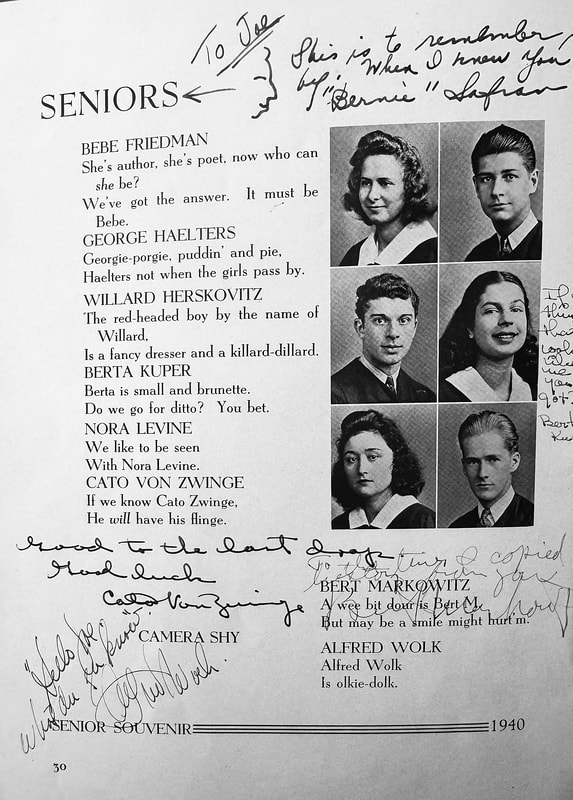 To Joe
This is to remember
by. When I knew you
"Bernie" Safran
SENIORS
BEBE FRIEDMAN
She's author, she's poet, now who can
she be?
We've got the answer. It must be
Bebe.
GEORGE HAELTERS
Georgie-porgie, puddin' and pie,
Haelters not when the girls pass by.
WILLARD HERSKOVITZ
The red-headed boy by the name of
Willard,
Is a fancy dresser and a killard-dillard.
BERTA KUPER
Berta is small and brunette.
Do we go for ditto? You bet.
NORA LEVINE
We like to be seen
With Nora Levine.
CATO VON ZWINGE
If we know Cato Zwinge,
He will have his flinge.
Good to the last drop
Good luck
Cato Von Zwinge
To the times I copied
BERT MARKOWITZ
A wee bit dour is Bert M.
But may be a smile might hurt'm.
CAMERA SHY
"Hello Joe
whatdu ya know".
Alfred Wolk.
ALFRED WOLK
Alfred Wolk
Is olkie-dolk.
SENIOR SOUVENIR 1940
30